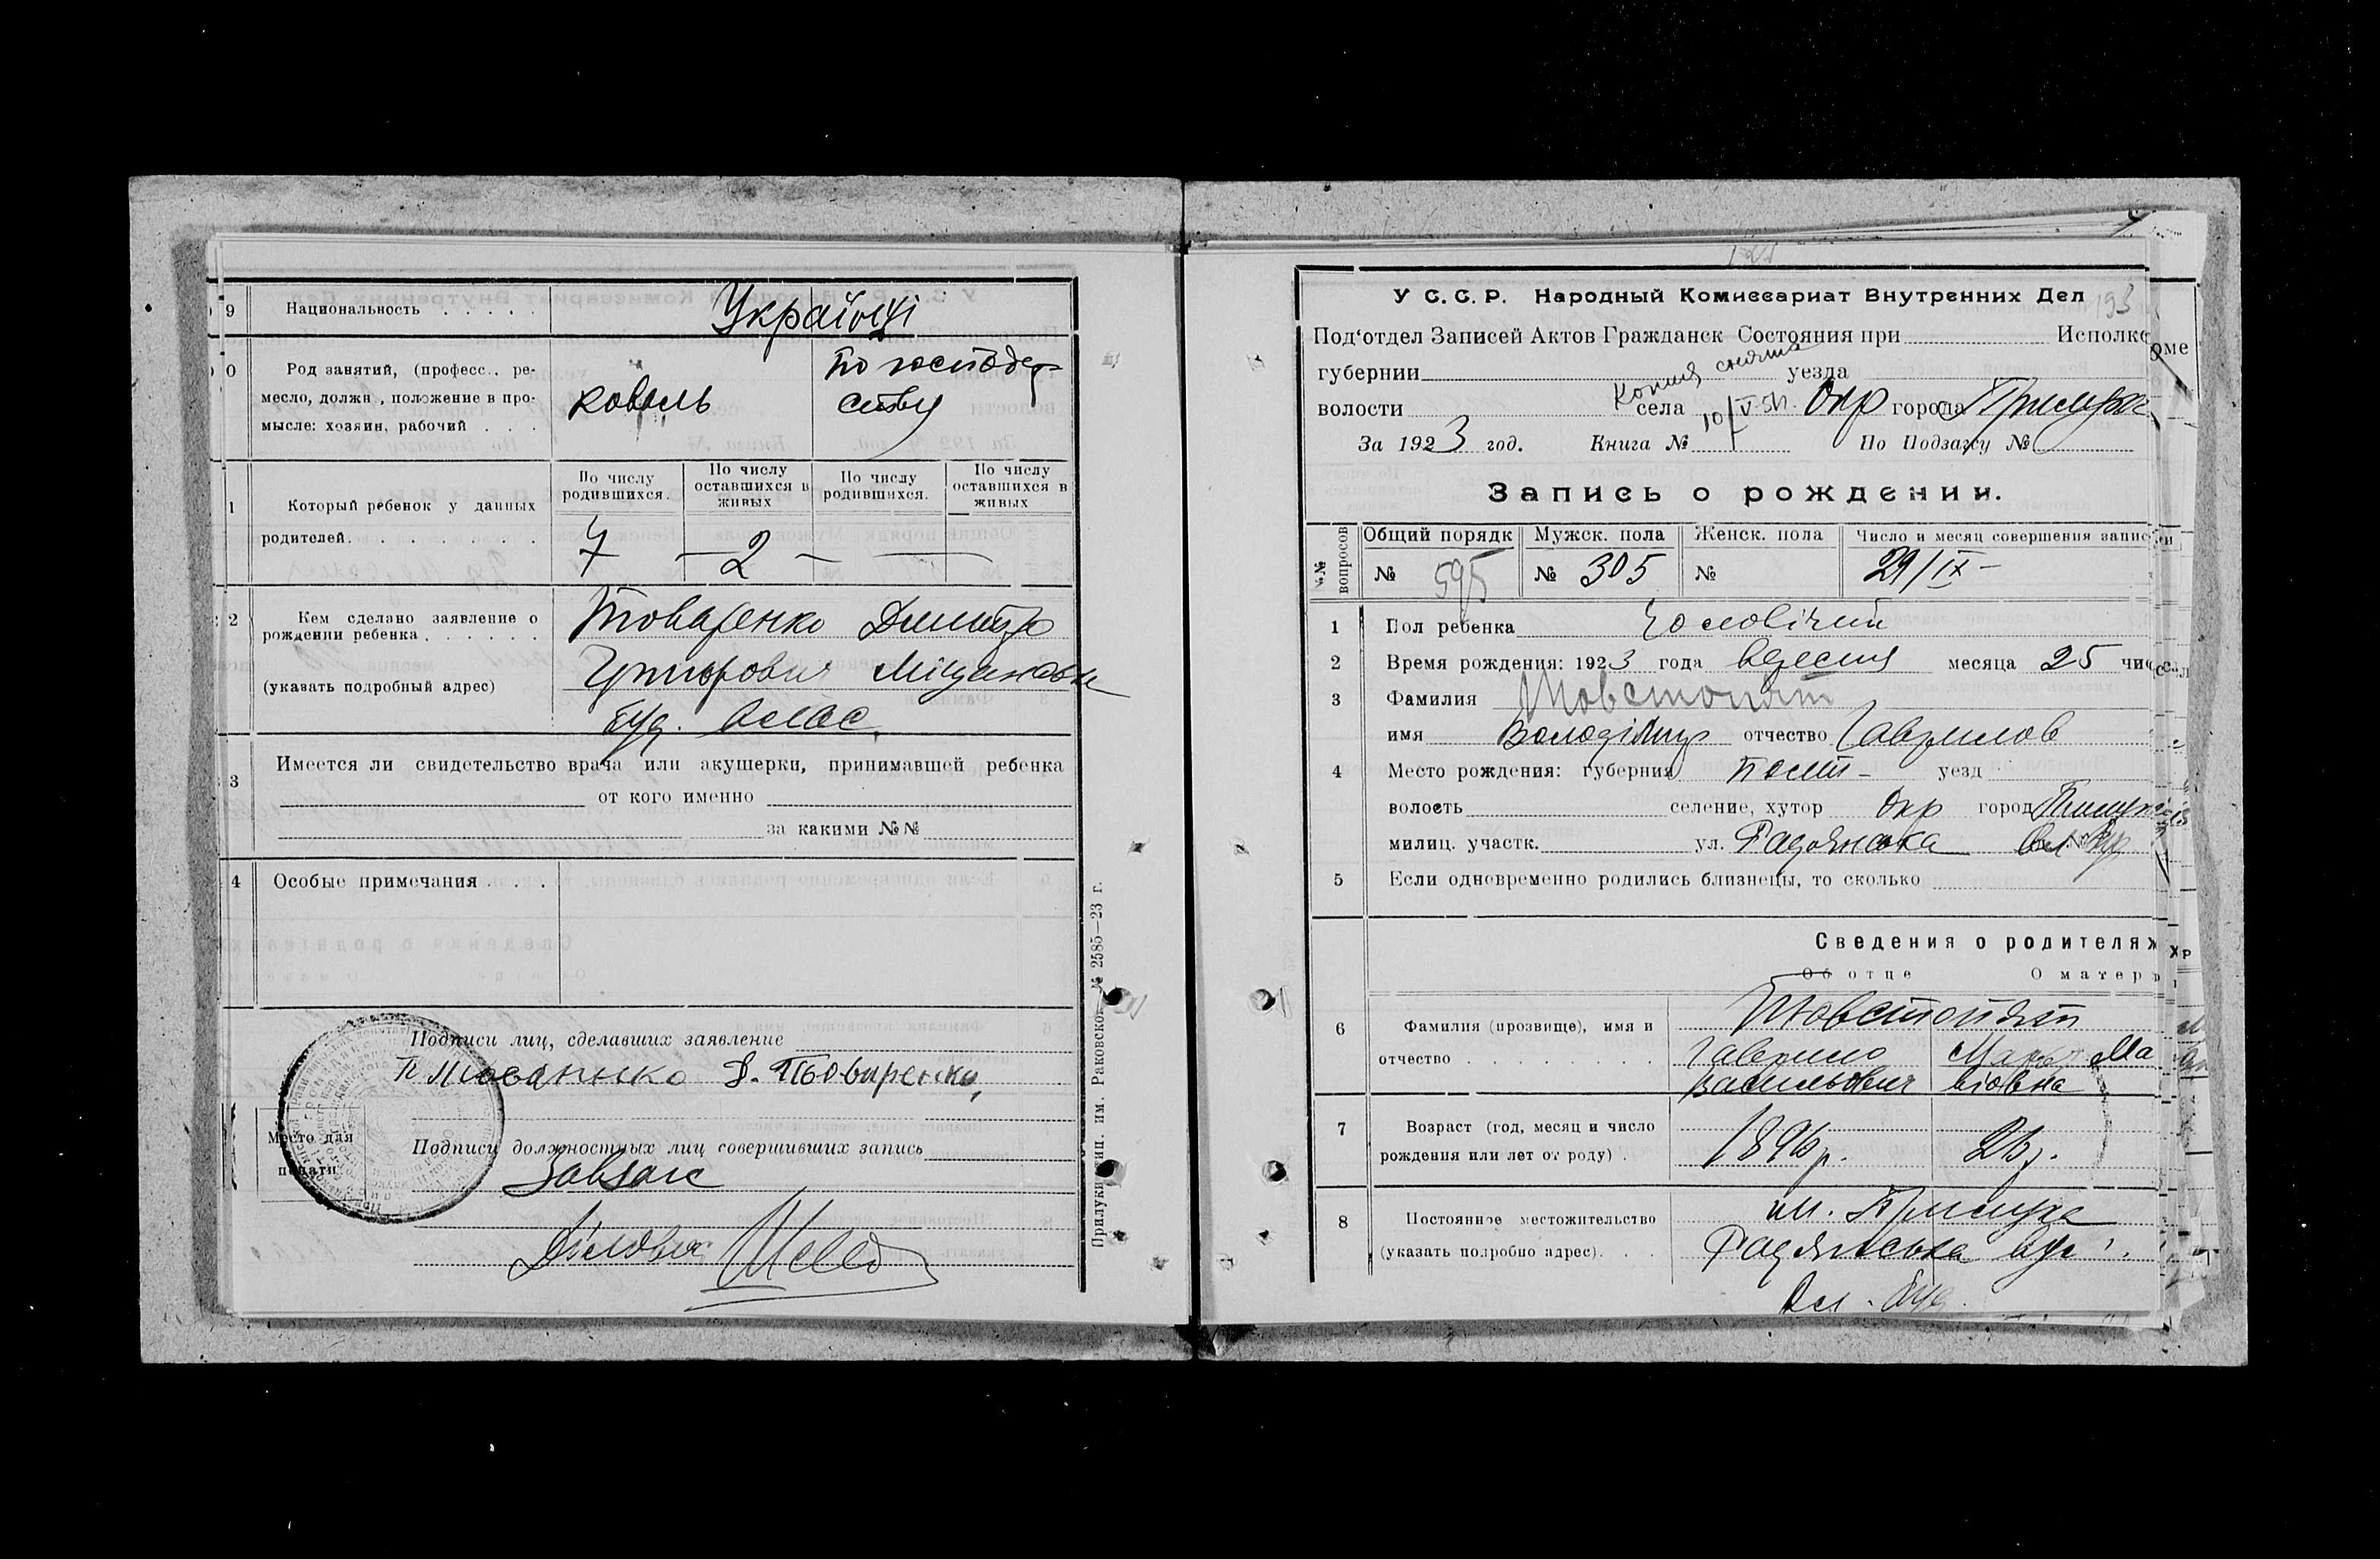 9 Национальность . . . . . Українці
0 Род занятий, (професс., ре-
месло, должн., положение в про-
мысле: хозяин, рабочий . . .
коваль
по господар-
ству
1 Который ребенок у данных
родителей. . . . . . .
По числу родившихся.
По числу оставшихся в живых
По числу родившихся.
По числу оставшихся в живых
7 — 2 — —
2 Кем сделано заявление о
рождении ребенка . . . . . .
(указать подробный адрес)
Товаренко Дмитро
Григорович
буд.
3 Имеется ли свидетельство врача или акушерки, принимавшей ребенка
от кого именно
за какими №№
4 Особые примечания . . .
Подписи лиц, сделавших заявление
Д. Товаренко
Место для
печати
Подписи должностных лиц совершивших запись
Завзагс
Діловод
Прилуки тип. им. Раковского № 2585—23 г.
193
У С. С. Р. Народный Комиссариат Внутренних Дел
Под'отдел Записей Актов Гражданск Состояния при Исполко
губернии уезда
Копия снята
волости села 10/V-51. Окр города Прилука
За 1923 год. Книга № По Подзагсу №
Запись о рождении.
№№ вопросов
Общий порядк Мужск. пола Женск. пола Число и месяц совершения запис
№ 595 № 305 № 29/IX -
1 Пол ребенка Чоловічий
2 Время рождения: 1923 года вересня месяца 25 чис
3 Фамилия Товстопят
имя Володімир отчество Гаврилов
4 Место рождения: губерния Полт- уезд
волость селение, хутор Окр город Прилуки
милиц. участк. ул. Радянська
5 Если одновременно родились близнецы, то сколько
Сведения о родителях
Об отце О матер
6 Фамилия (прозвище), имя и
отчество . . . . . . . .
Товстопят
Гаврило
Васильович
7 Возраст (год, месяц и число
рождения или лет от роду) .
1896р. 26р.
8 Постоянное местожительство
(указать подробно адрес). . .
м. Прилука
Радянська вул.
буд.